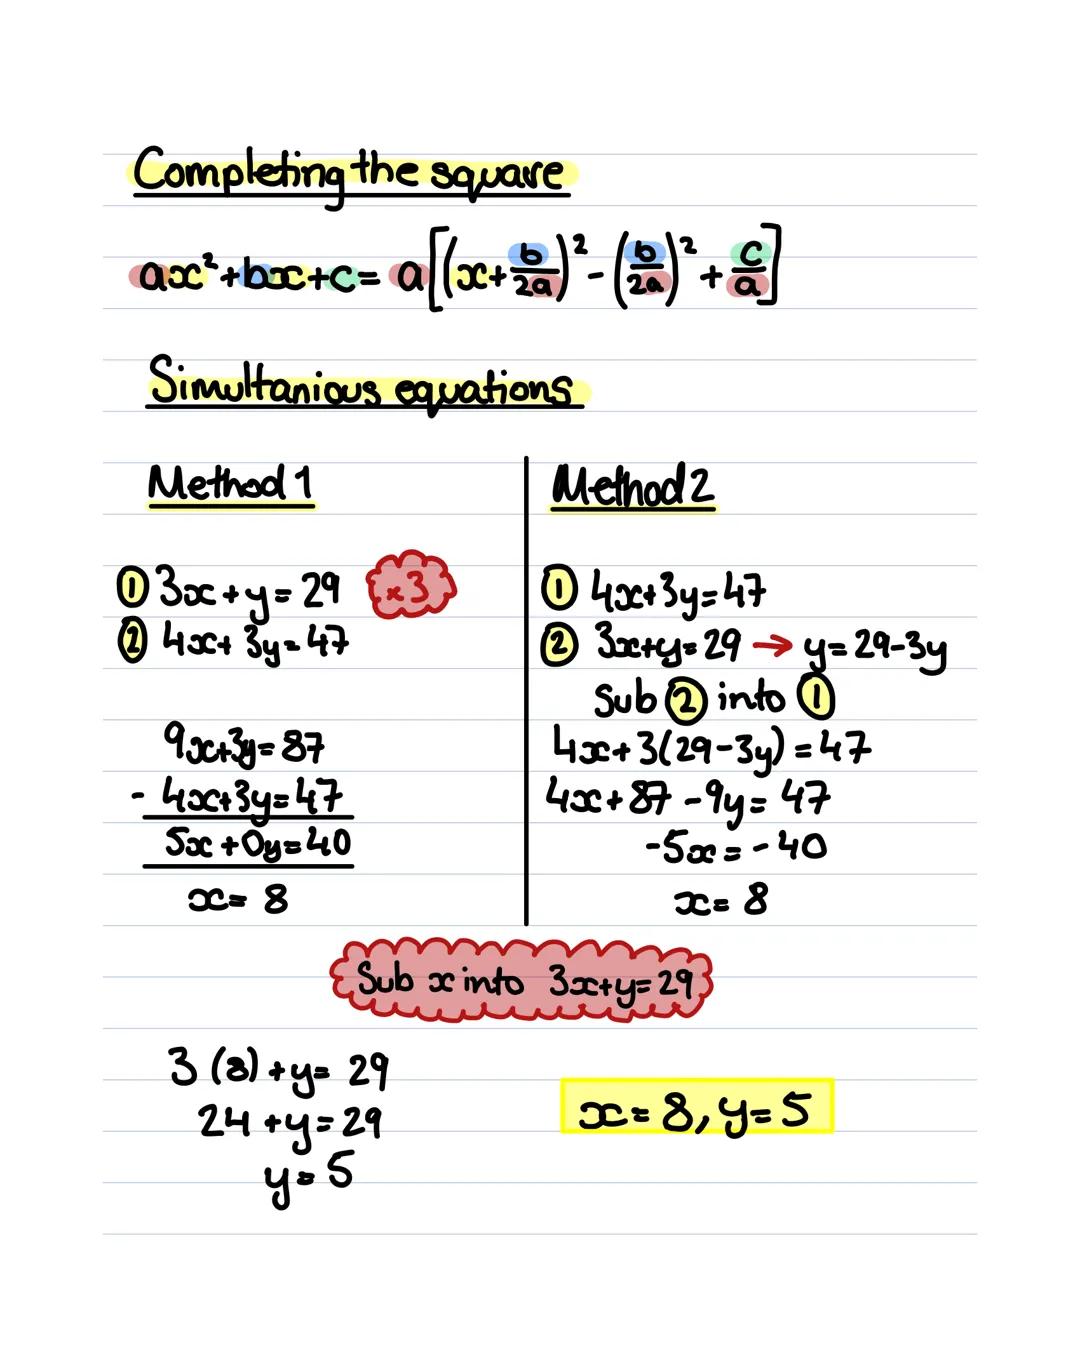 Completing the square
ax²+bx+c= a[(x+b/2a)²-(b/2a)²+c/a]
Simultanious equations
Method 1
① 3x+y=29 ×3
② 4x+3y=47
9x+3y=87
- 4x+3y=47
5x+0y=40
x=8
Method 2
① 4x+3y=47
② 3x+y=29 → y=29-3y
Sub ② into ①
4x+3(29-3y)=47
4x+87-9y=47
-5x=-40
x=8
Sub x into 3x+y=29
3(8)+y=29
24+y=29
y=5
x=8, y=5